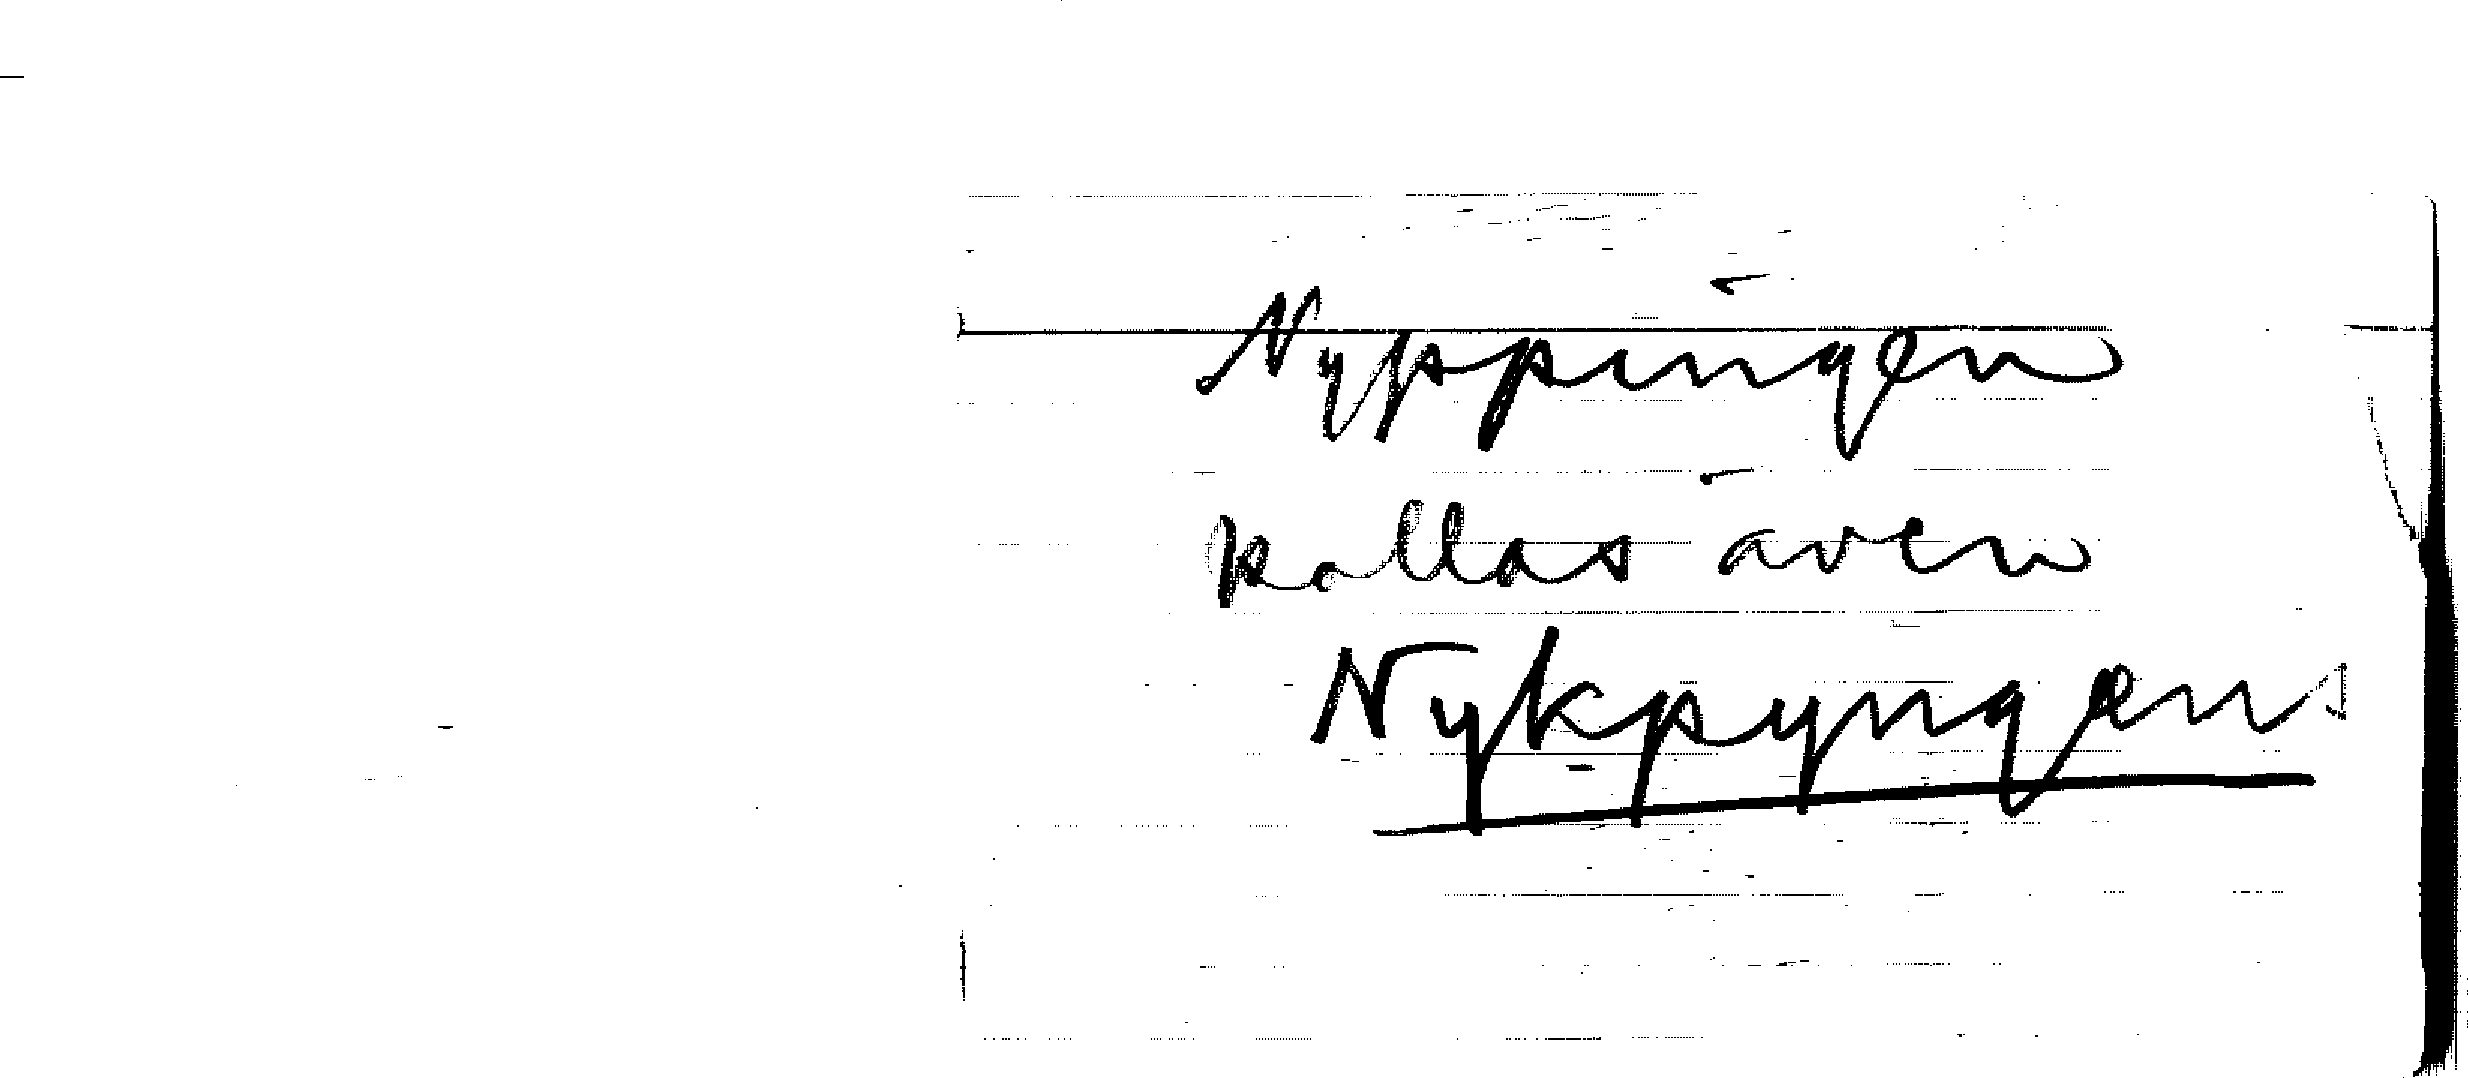 Nyppingen
kallas även
Nykpyngens